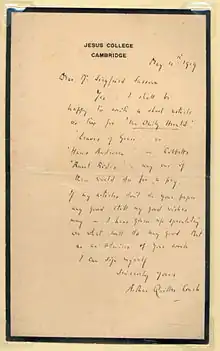 JESUS COLLEGE
CAMBRIDGE
May 4th 1919
Dear Mr Siegfried Sassoon
Yes I shall be
happy to write a short article
or two for "The Daily Herald".
"Leaves of Grass" or
"Hans Andersen" or
any one of
them would do for a
If my articles don't do your paper
any good still my good wishes
may - I have given up speculating
on what will do any good. But
as an admirer of your work
I can sign myself
Sincerely yours
Arthur Quiller Couch